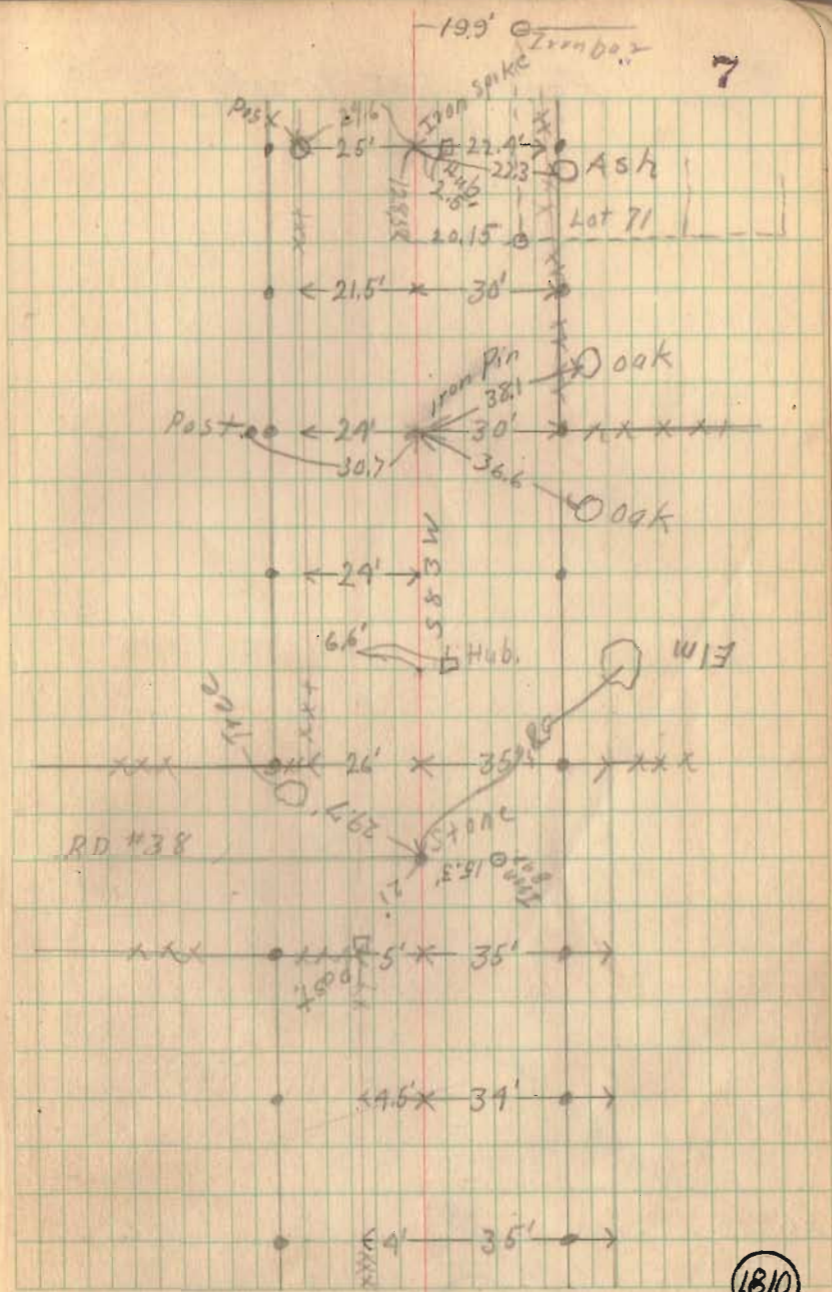 19.9' Iron bar
7
Post 24.6 Iron spike
25' 22.4'
Hub 22.3 Ash
2.5'
20.15 Lot 71
21.5' 30'
Iron Pin
38.1 oak
Post 24' 30'
30.7 36.6
oak
S83W
24'
6.6' Hub.
Elm
Tree
26' 35'
29.7' Stone
RD #38
15.3' Iron bar
21'
5' 35'
Post.
4.5' 34'
4' 35'
1810